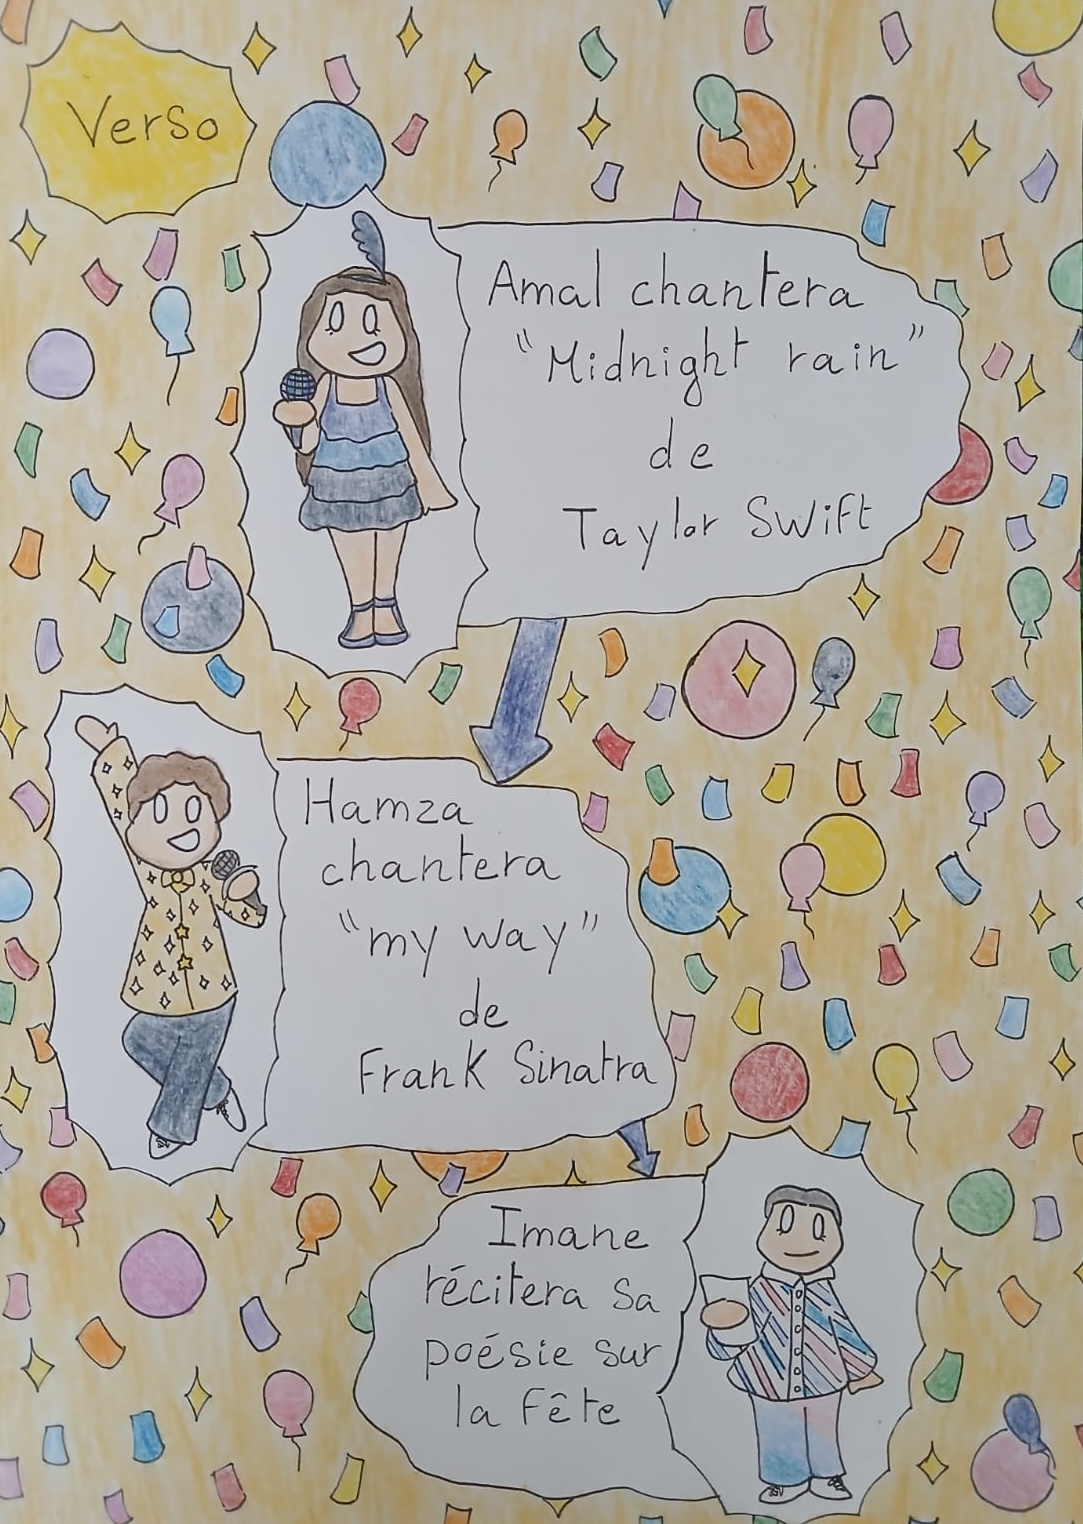 Verso
Amal chantera
"Midnight rain"
de
Taylor Swift
Hamza
chantera
"my way"
de
Frank Sinatra
Imane
récitera sa
poésie sur
la Fête